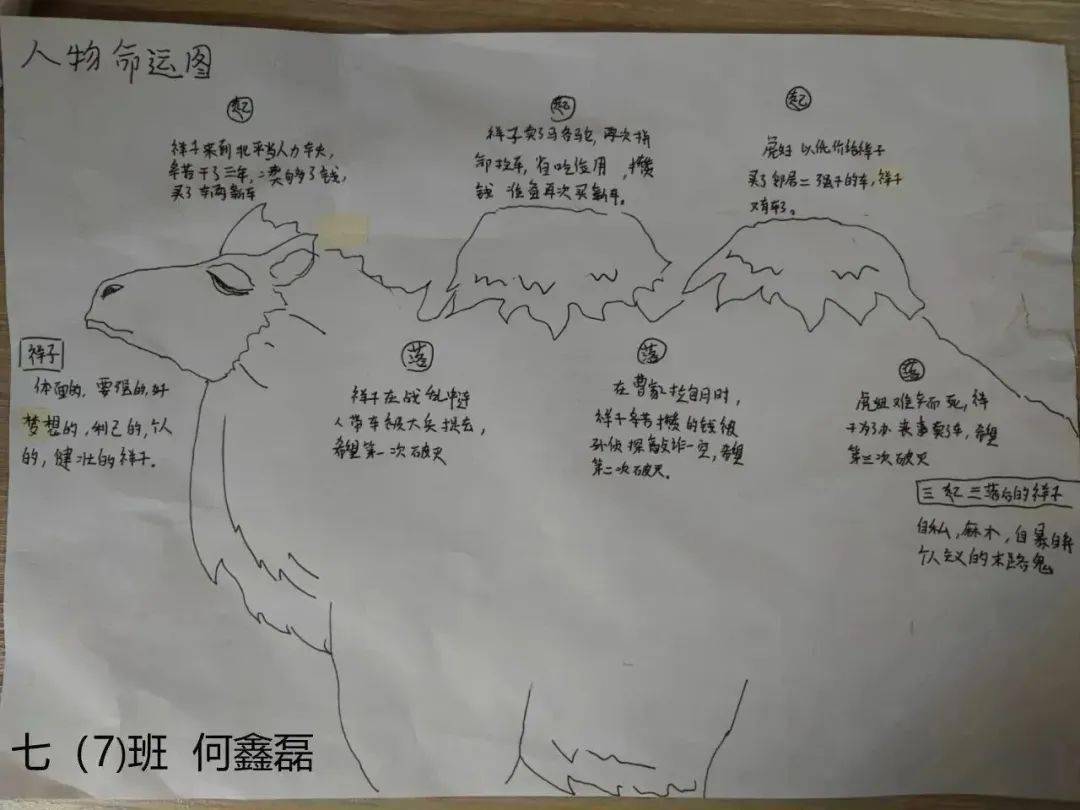 人物命运图
起
祥子来到北平当人力车夫,
辛苦干了三年,凑够了钱,
买了车两新车
起
祥子卖了骆驼,再次拍
卸拉车,省吃俭用,攒
钱准备再次买新车。
起
虎妞以低价给祥子
买了邻居二强子的车,祥子
又有车了。
祥子
体面的,要强的,好
梦想的,利己的,个人
的,健壮的祥子。
落
祥子在战乱中连
人带车被大兵捉去,
希望第一次破灭
落
在曹家拉包月时,
祥子辛苦攒的钱被
孙侦探敲诈一空,希望
第二次破灭。
落
虎妞难产而死,祥
子为了办丧事卖了车,希望
第三次破灭
三起三落后的祥子
自私,麻木,自暴自弃
个人主义的末路鬼
七(7)班 何鑫磊